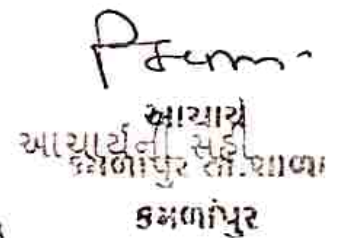 આચાર્ય
આચાર્યની સહી
કમળાપુર તા.શાળા
કમળાપુર